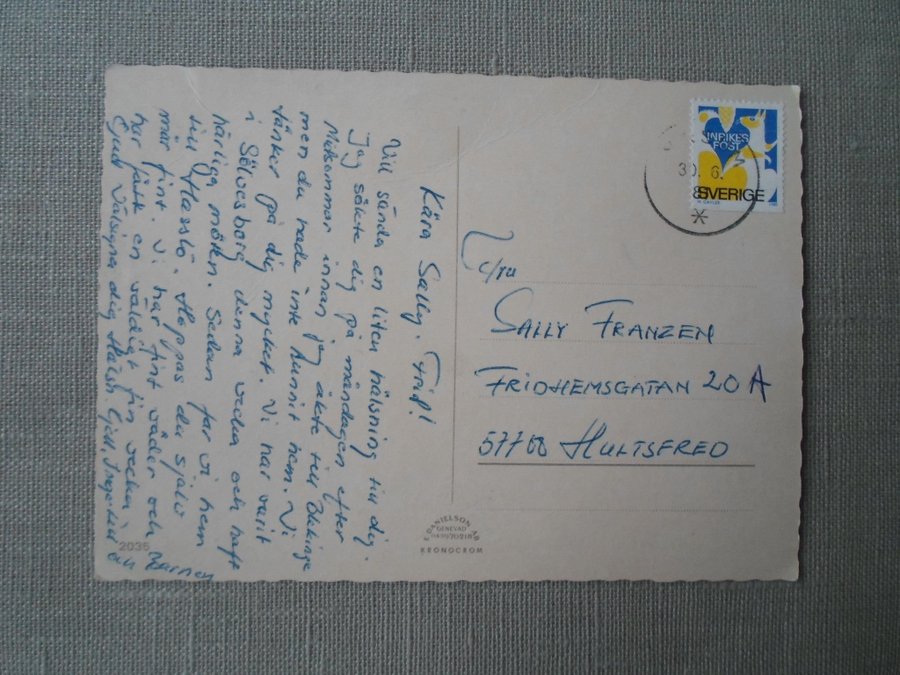 Kära Sally. Frid!
Vill sända en liten hälsning till dig.
Jag sökte dig på måndagen efter
innan jag åkte till Blekinge
men du hade inte hunnit hem. Vi
tänker på dig mycket. Vi har varit
i Sölvesborg denna vecka och haft
härliga möten. Sedan far vi hem
till Hasslö. Hoppas du själv
mår fint. Vi har fint väder och
har fått en väldigt fin vecka.
Gud välsigna dig
barnen
2036
INRIKES
POST
SVERIGE
30. 6.
c/o
SALLY FRANZEN
FRIDHEMSGATAN 20 A
57700 HULTSFRED
DANIELSON AB
GENEVAD
KRONOCROM